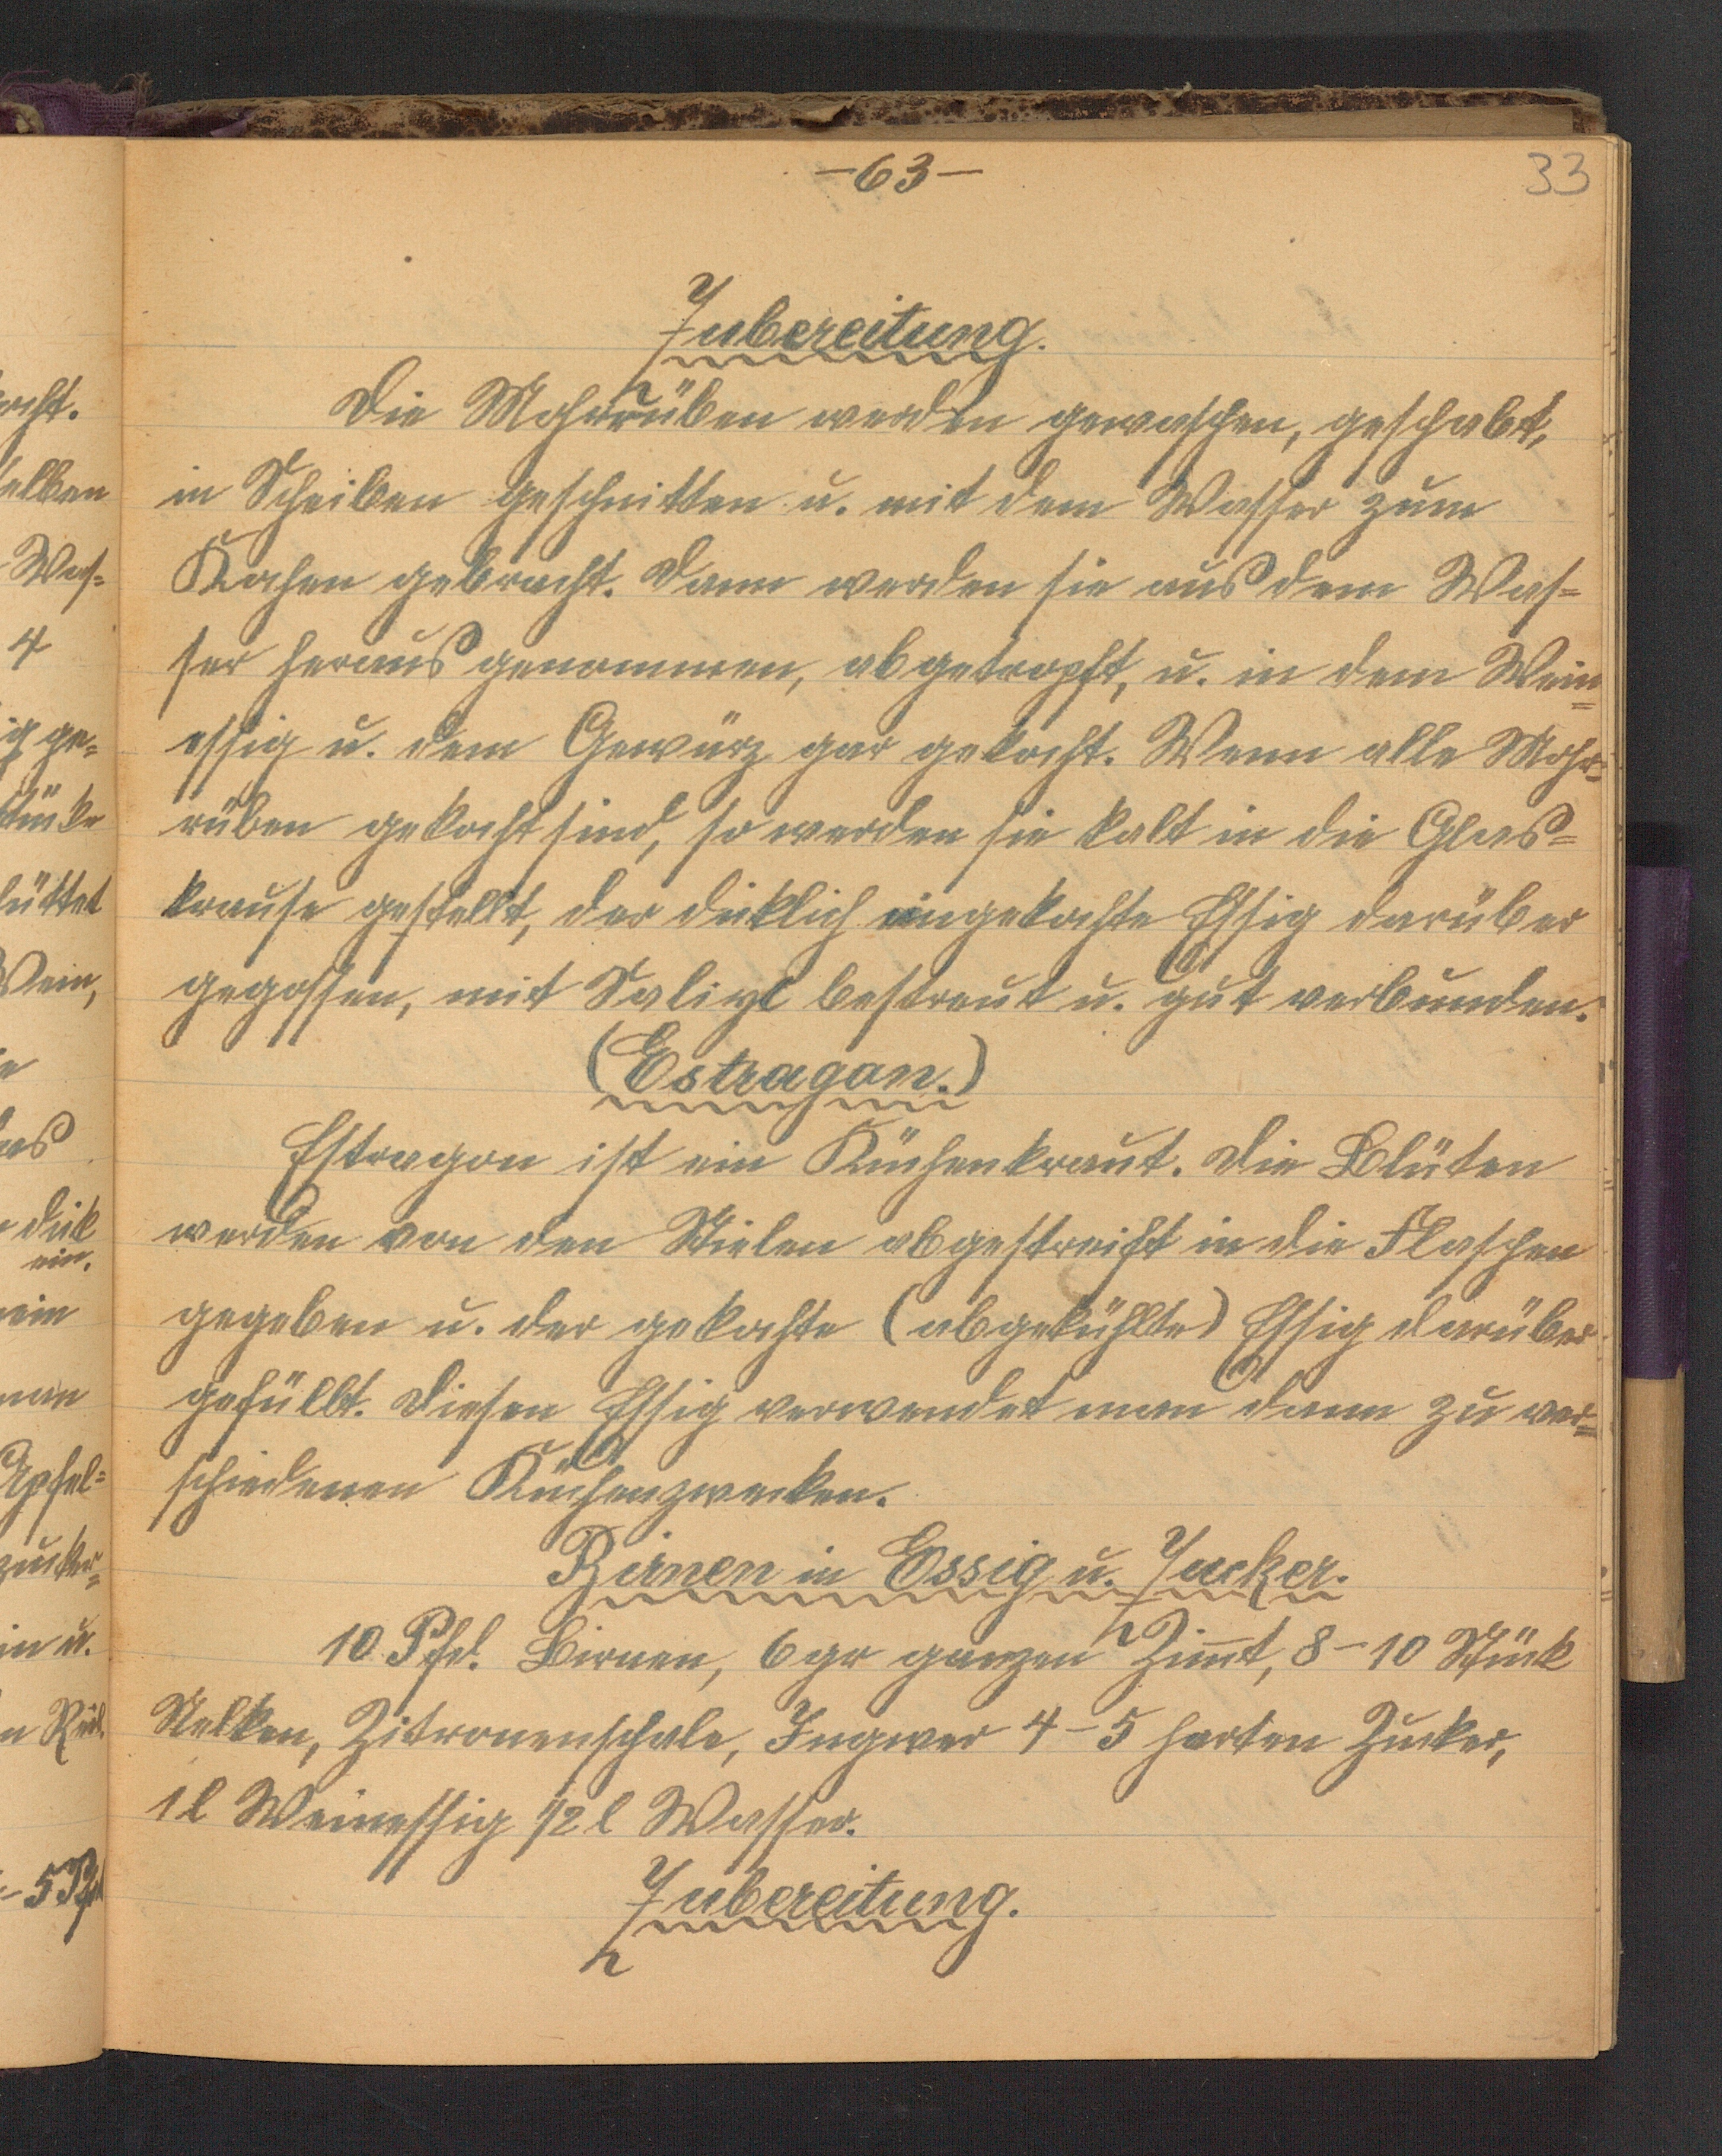 ocht.
selben
Was=
4
ig ge=
stücke
schüttet
Wein,
ie
das
dick
ein.
ein
man
Apfel=
zucker=
in u.
- 5 Pfd
-63-
33
Zubereitung.
Die Mohrrüben werden gewaschen, geschabt,
in Scheiben geschnitten u. mit dem Wasser zum
Kochen gebracht. Dann werden sie aus dem Was=
ser heraus genommen, abgetropft, u. in dem Wein=
essig u. dem Gewürz gar gekocht. Wenn alle Mohr=
rüben gekocht sind, so werden sie kalt in die Glas=
krause gestellt, der dicklich eingekochte Essig darüber
gegossen, mit Salizl bestreut u. gut verbunden.
(Estragon.)
Estragon ist ein Küchenkraut. Die Blüten
werden von den Stielen abgestreift in die Flaschen
gegeben u. der gekochte (abgekühlte) Essig darüber
gefüllt. Diesen Essig verwendet man dann zu ver=
schiedenen Küchenzwecken.
Birnen in Essig u. Zucker.
10 Pfd. Birnen, 6 gr ganzen Zimt, 8-10 Stück
Nelken, Zitronenschale, Ingwer 4-5 harten Zucker,
1 l Weinessig 1/2 l Wasser.
Zubereitung.